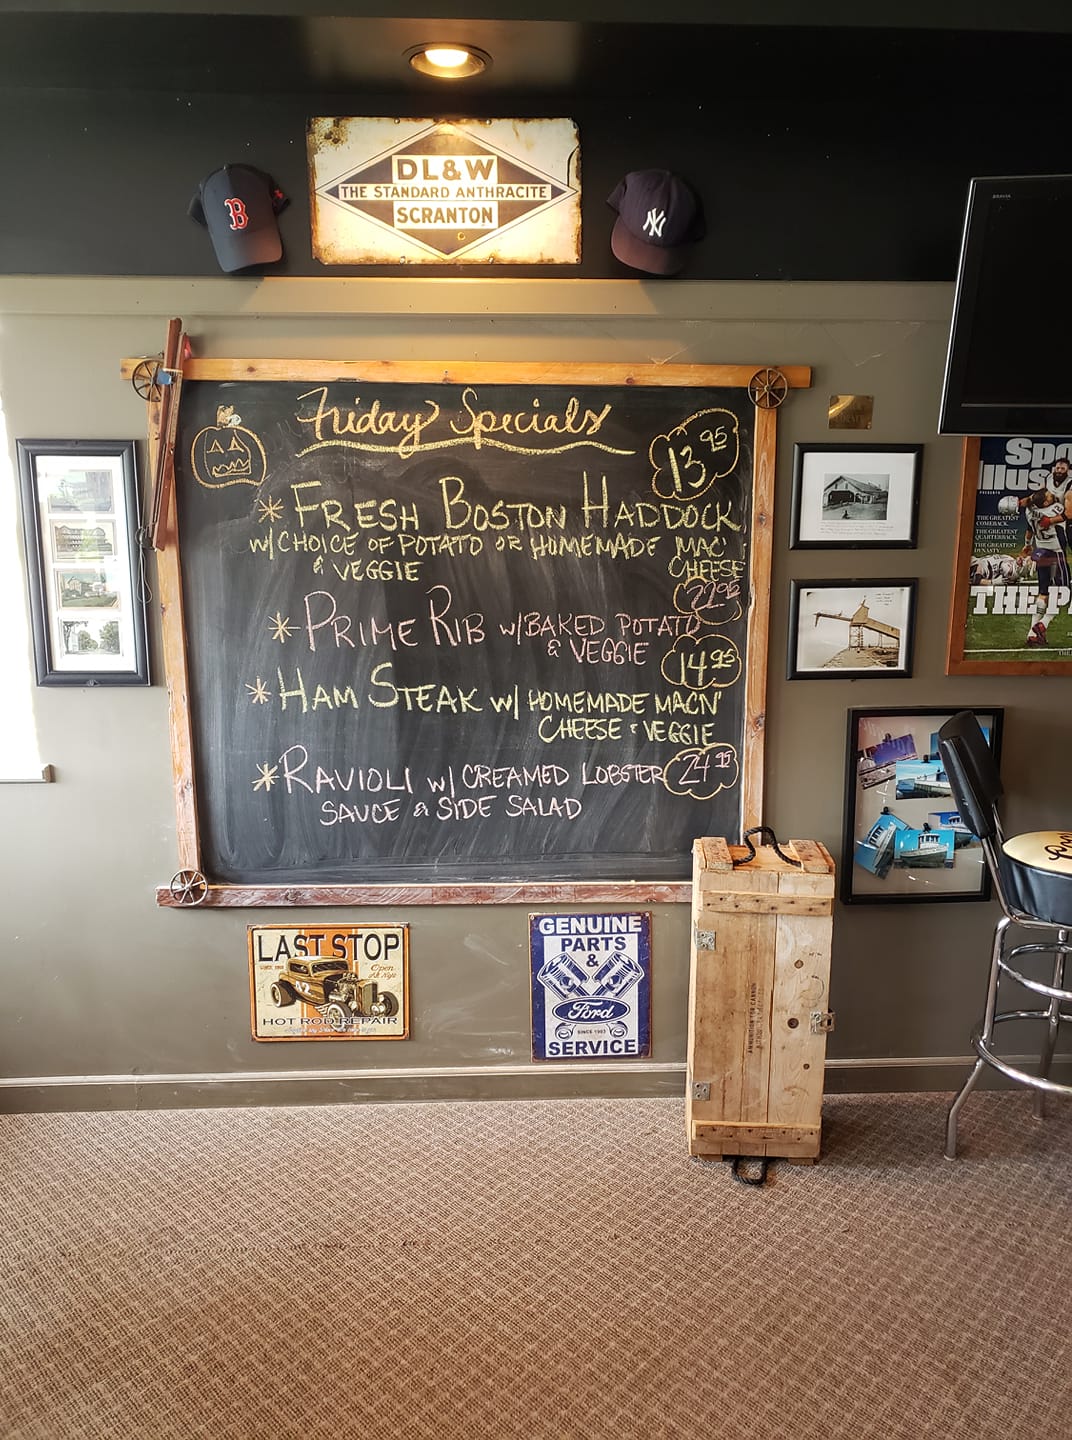 DL&W
THE STANDARD ANTHRACITE
SCRANTON
B
NY
BRAVIA
Friday Specials
13 95
* FRESH BOSTON HADDOCK
W/ CHOICE OF POTATO OR HOMEMADE MAC'
& VEGGIE CHEESE
22 95
* PRIME RIB W/ BAKED POTATO
& VEGGIE
14 95
* HAM STEAK W/ HOMEMADE MACN'
CHEESE & VEGGIE
* RAVIOLI W/ CREAMED LOBSTER 24 95
SAUCE & SIDE SALAD
Spo
Illus
PRESENTS
THE GREATEST
COMEBACK.
THE GREATEST
QUARTERBACK.
THE GREATEST
DYNASTY.
THE P
LAST STOP
Open
All Nite
HOT ROD REPAIR
GENUINE
PARTS
&
Ford
SINCE 1903
SERVICE
AMMUNITION FOR CANNON